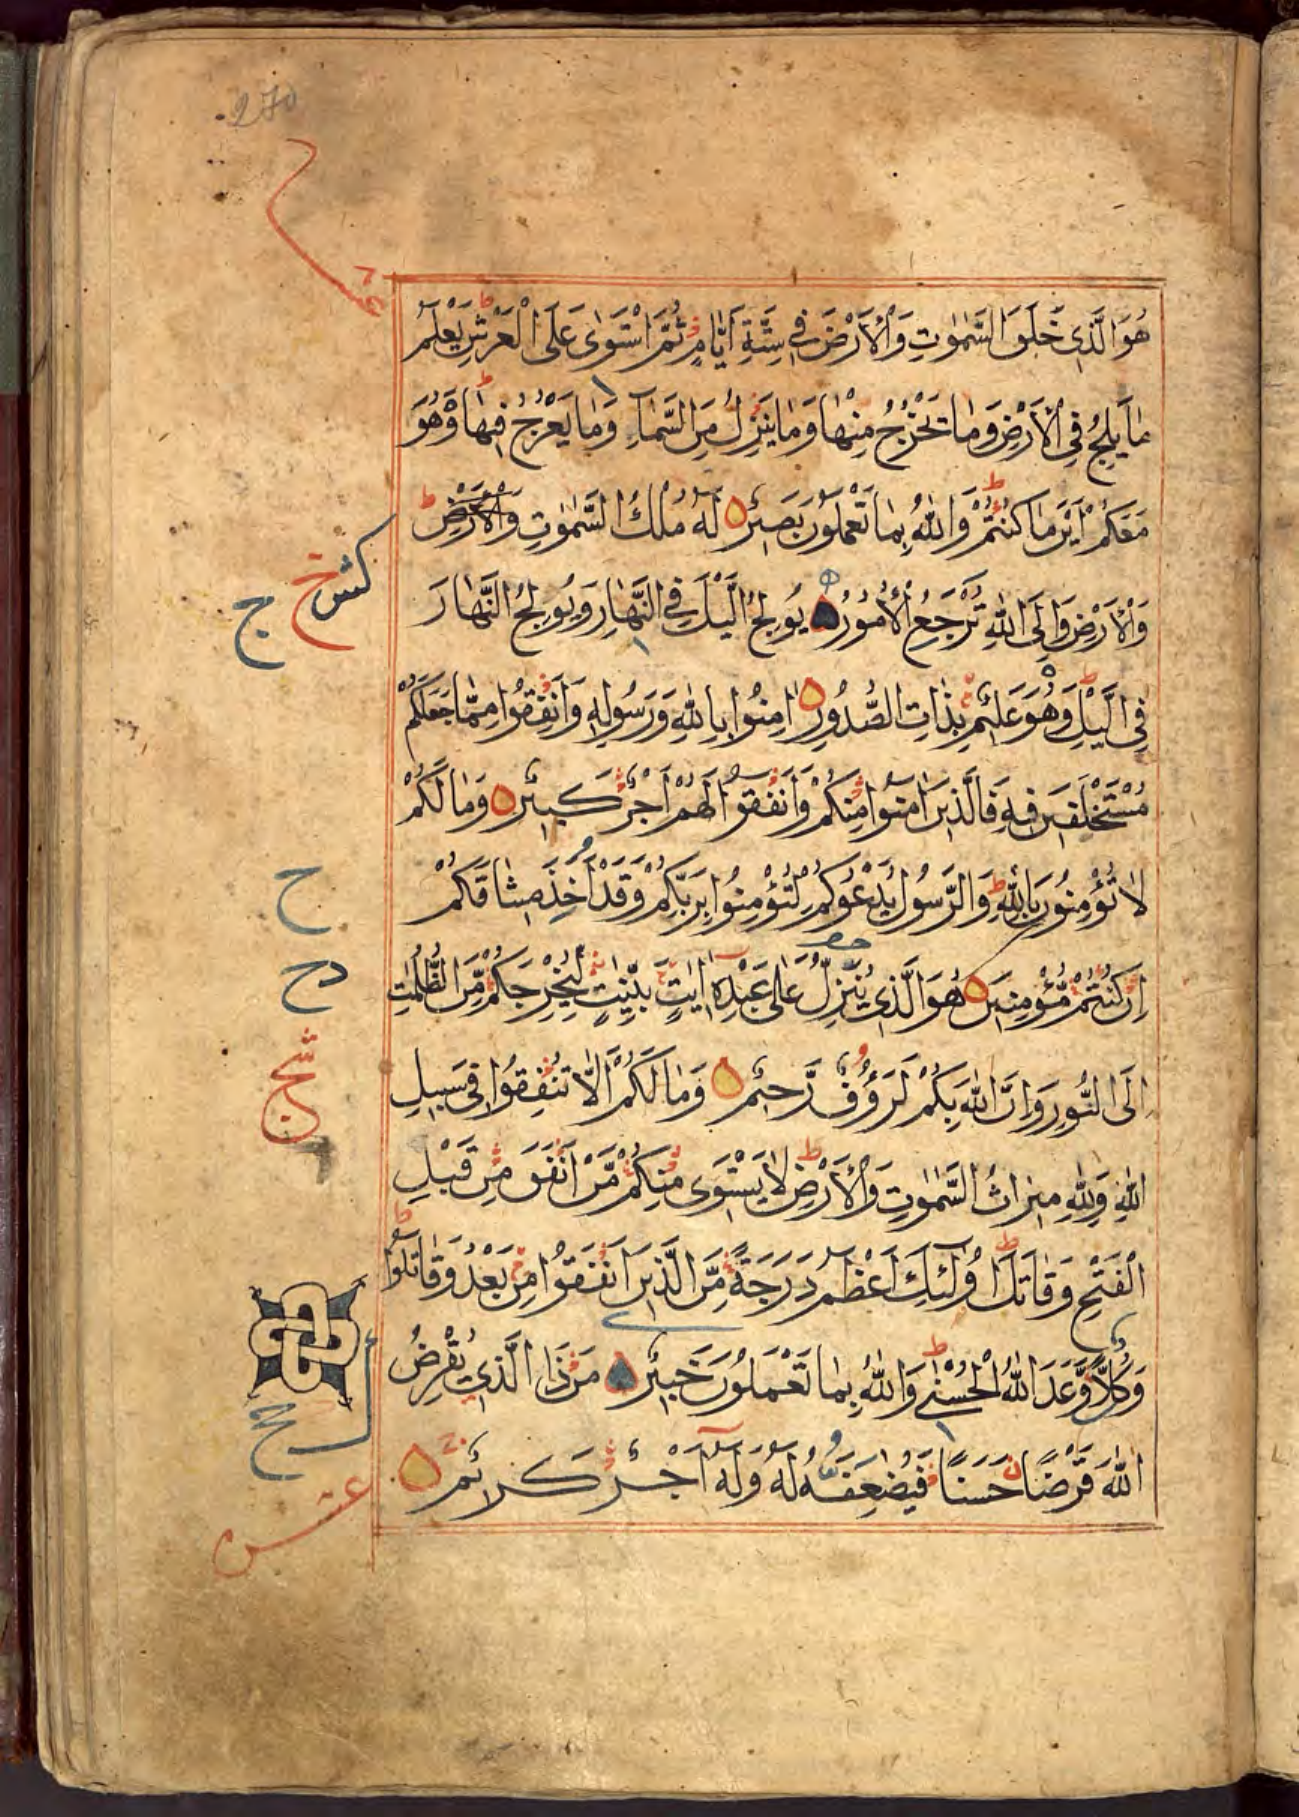 270
عشر
هُوَ الَّذِى خَلَقَ السَّمٰوٰتِ وَالْاَرْضَ فِى سِتَّةِ اَيَّامٍ ثُمَّ اسْتَوٰى عَلَى الْعَرْشِ يَعْلَمُ
مَا يَلِجُ فِى الْاَرْضِ وَمَا يَخْرُجُ مِنْهَا وَمَا يَنْزِلُ مِنَ السَّمَاءِ وَمَا يَعْرُجُ فِيهَا وَهُوَ
مَعَكُمْ اَيْنَ مَا كُنْتُمْ وَاللّٰهُ بِمَا تَعْمَلُونَ بَصِيرٌ لَهُ مُلْكُ السَّمٰوٰتِ وَالْاَرْضِ
وَالْاَرْضِ وَاِلَى اللّٰهِ تُرْجَعُ الْاُمُورُ يُولِجُ الَّيْلَ فِى النَّهَارِ وَيُولِجُ النَّهَارَ
فِى الَّيْلِ وَهُوَ عَلِيمٌ بِذَاتِ الصُّدُورِ اٰمِنُوا بِاللّٰهِ وَرَسُولِهِ وَاَنْفِقُوا مِمَّا جَعَلَكُمْ
مُسْتَخْلَفِينَ فِيهِ فَالَّذِينَ اٰمَنُوا مِنْكُمْ وَاَنْفَقُوا لَهُمْ اَجْرٌ كَبِيرٌ وَمَا لَكُمْ
لَا تُؤْمِنُونَ بِاللّٰهِ وَالرَّسُولُ يَدْعُوكُمْ لِتُؤْمِنُوا بِرَبِّكُمْ وَقَدْ اَخَذَ مِيثَاقَكُمْ
اِنْ كُنْتُمْ مُؤْمِنِينَ هُوَ الَّذِى يُنَزِّلُ عَلٰى عَبْدِهِ اٰيٰتٍ بَيِّنٰتٍ لِيُخْرِجَكُمْ مِنَ الظُّلُمٰتِ
اِلَى النُّورِ وَاِنَّ اللّٰهَ بِكُمْ لَرَؤُفٌ رَحِيمٌ وَمَا لَكُمْ اَلَّا تُنْفِقُوا فِى سَبِيلِ
اللّٰهِ وَلِلّٰهِ مِيرَاثُ السَّمٰوٰتِ وَالْاَرْضِ لَا يَسْتَوِى مِنْكُمْ مَنْ اَنْفَقَ مِنْ قَبْلِ
الْفَتْحِ وَقَاتَلَ اُولٰئِكَ اَعْظَمُ دَرَجَةً مِنَ الَّذِينَ اَنْفَقُوا مِنْ بَعْدُ وَقَاتَلُوا
وَكُلًّا وَعَدَ اللّٰهُ الْحُسْنٰى وَاللّٰهُ بِمَا تَعْمَلُونَ خَبِيرٌ مَنْ ذَا الَّذِى يُقْرِضُ
اللّٰهَ قَرْضًا حَسَنًا فَيُضٰعِفَهُ لَهُ وَلَهُ اَجْرٌ كَرِيمٌ
ح
عشر